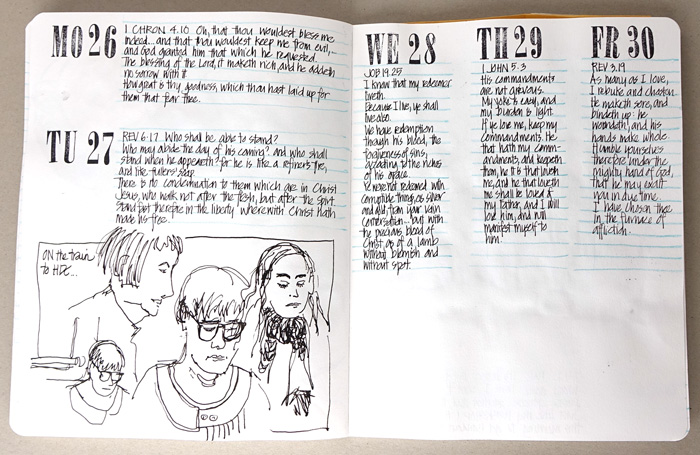 MO 26
1 CHRON 4.10 Oh, that thou wouldest bless me
indeed... and that thou wouldest keep me from evil,
and God granted him that which he requested.
The blessing of the Lord, it maketh rich, and he addeth
no sorrow with it.
How great is thy goodness, which thou hast laid up for
them that fear thee.
TU 27
REV 6.17 Who shall be able to stand?
Who may abide the day of his coming? and who shall
stand when he appeareth? for he is like a refiner's fire,
and like fullers' soap.
There is no condemnation to them which are in Christ
Jesus, who walk not after the flesh, but after the Spirit.
Stand fast therefore in the liberty wherewith Christ hath
made us free.
ON the train
to HDC...
WE 28
JOB 19.25
I know that my redeemer
liveth.
Because I live, ye shall
live also.
We have redemption
through his blood, the
forgiveness of sins,
according to the riches
of his grace.
Ye were not redeemed with
corruptible things, as silver
and gold, from your vain
conversation... but with
the precious blood of
Christ, as of a lamb
without blemish and
without spot.
TH 29
1 JOHN 5.3
His commandments
are not grievous.
My yoke is easy, and
my burden is light.
If ye love me, keep my
commandments. He
that hath my com-
mandments, and keepeth
them, he it is that loveth
me, and he that loveth
me shall be loved of
my Father, and I will
love him, and will
manifest myself to
him.
FR 30
REV 3.19
As many as I love,
I rebuke and chasten.
He maketh sore, and
bindeth up: he
woundeth, and his
hands make whole.
Humble yourselves
therefore under the
mighty hand of God,
that he may exalt
you in due time.
I have chosen thee
in the furnace of
affliction.